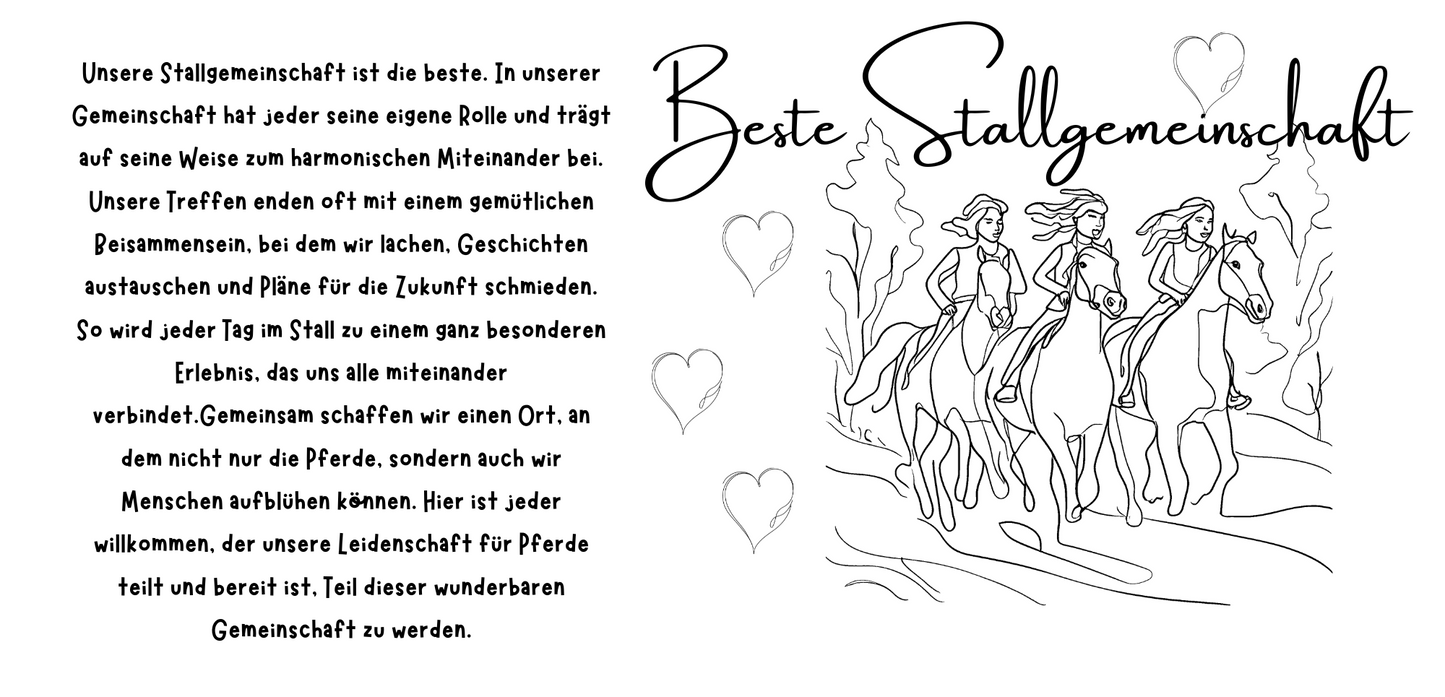 Unsere Stallgemeinschaft ist die beste. In unserer
Gemeinschaft hat jeder seine eigene Rolle und trägt
auf seine Weise zum harmonischen Miteinander bei.
Unsere Treffen enden oft mit einem gemütlichen
Beisammensein, bei dem wir lachen, Geschichten
austauschen und Pläne für die Zukunft schmieden.
So wird jeder Tag im Stall zu einem ganz besonderen
Erlebnis, das uns alle miteinander
verbindet.Gemeinsam schaffen wir einen Ort, an
dem nicht nur die Pferde, sondern auch wir
Menschen aufblühen können. Hier ist jeder
willkommen, der unsere Leidenschaft für Pferde
teilt und bereit ist, Teil dieser wunderbaren
Gemeinschaft zu werden.
Beste Stallgemeinschaft